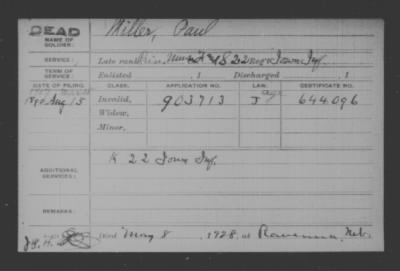 DEAD
NAME OF SOLDIER:
Miller, Paul
SERVICE:
Late rank, 22 Reg't Iowa Inf.
TERM OF SERVICE:
Enlisted , 1 Discharged , 1
DATE OF FILING. CLASS. APPLICATION NO. LAW. CERTIFICATE NO.
1890 Aug 15 Invalid, 903713 J 644.096
Widow,
Minor,
ADDITIONAL SERVICES:
K 22 Iowa Inf.
REMARKS:
Died May 8 1928, at Ravenna, Neb.